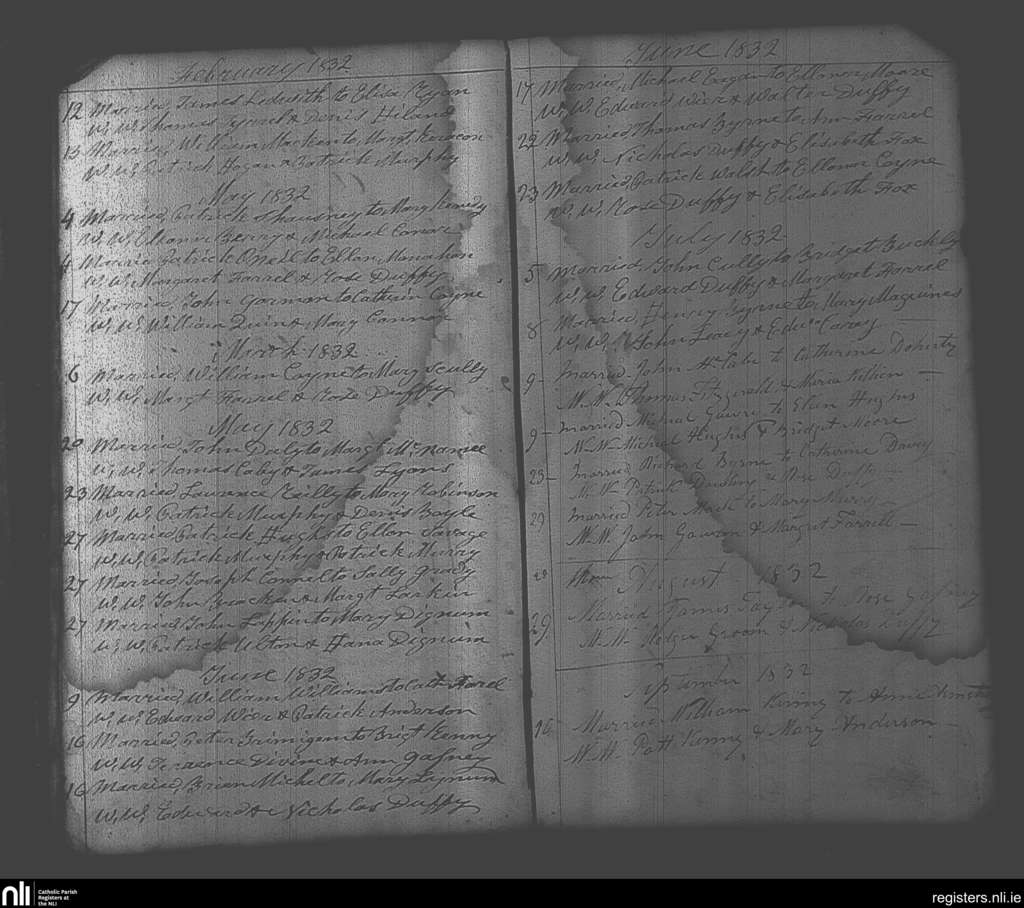 February 1832
12 Married, James Ledwith to Eliza Ryan
W, W, Thomas Lynch & Denis Hiland
13 Married, William to Margt,
W, W, Patrick Hogan & Patrick Murphy
May 1832
4 Married, Patrick to Mary Kenedy
W, W, Ellanor Berry & Michael
4 Married Patrick Oneil to Ellan, Monahan
W, W, Margaret Farrel & Rose Duffy
17 Married, John Gorman to Cathrin Coyne
W, W, William Quin & Mary Connor
March 1832
6 Married, William Coyne to Mary Scully
W, W, Margt Farrel & Rose Duffy
May 1832
20 Married, John Daly to Margt McNamee
W, W, Thomas Caby & James Lyons
23 Married, Laurence Reilly to Mary Robinson
W, W, Patrick Murphy & Denis Boyle
27 Married, Patrick Hughs to Ellan Savage
W, W, Patrick Murphy & Patrick Murry
27 Married, Joseph Connel to Sally Grady
W, W, John Bracken & Margt Larkin
27 Married John Lippin to Mary Dignum
W, W, Patrick & Hana Dignum
June 1832
9 Married, William Williams to Cath Farel
W, W, Edward Wier & Patrick Anderson
16 Married, Peter to Brigt Kenny
W, W, Terence Divine & Ann Gafney
16 Married, Brian Michel to, Mary
W, W, Edward & Nicholas Duffy
June 1832
17 Married, Michael Eagan to Ellanor Moore
W, W, Edward Wier & Walter Duffy
22 Married Thomas Byrne to Ann Farrel
W, W, Nicholas Duffy & Elisabeth Fox
23 Married, Patrick Walsh to Ellanor Coyne
W, W, Rose Duffy & Elisabeth Fox
July 1832
5 Married, John Cully to Bridget Buckly
W, W, Edward Duffy & Margaret Farrel
8 Married, Henry Byrne to, Mary Maguines
W, W, John Leacy & Edwd Carey
9 - Married John McCabe to Catherine Doherty
W. W. Thomas Fitzgerald & Maria —
9 - Married Michael to Ellen Hughes
W. W. Michael Hughes & Bridget Moore
23 - Married Richard Byrne to Catherine Davey
W. W. Patrick Dowling & Rose Duffy —
29 Married Peter to Mary Murry
W. W. John & Margret Farrell —
August 1832
29 Married James Taylor to Rose Gafney
W. W. Rodger Groom & Nicholas Duffy
September 1832
16 Married William Kinny to
W. W. Patt Kinny & Mary Anderson —
nli
Catholic Parish
Registers at
the NLI
registers.nli.ie